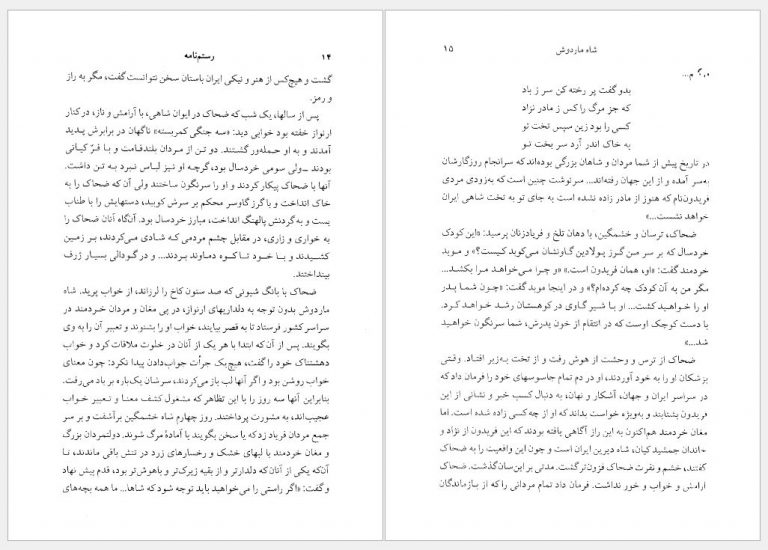 ۱۴ رستم‌نامه
گشت و هیچ‌کس از هنر و نیکی ایران باستان سخن نتوانست گفت، مگر به راز
و رمز.
پس از سالها، یک شب که ضحاک در ایوان شاهی، با آرامش و ناز، در کنار
ارنواز خفته بود خوابی دید: «سه جنگی کمربسته» ناگهان در برابرش پدید
آمدند و به او حمله‌ور گشتند. دو تن از مردان بلندقامت و با فرّ کیانی
بودند ــ ولی سومی خردسال بود، گرچه او نیز لباس نبرد به تن داشت.
آنها با ضحاک پیکار کردند و او را سرنگون ساختند ولی آن که ضحاک را به
خاک انداخت و با گرز گاوسر محکم بر سرش کوبید، دستهایش را با طناب
بست و به گردنش پالهنگ انداخت، مبارز خردسال بود. آن‌گاه آنان ضحاک را
به خواری و زاری، در مقابل چشم مردمی که شادی می‌کردند، بر زمین
کشیدند و با خود تا کوه دماوند بردند... و در گودالی بسیار ژرف
بینداختند.
ضحاک با بانگ شیونی که صد ستون کاخ را لرزاند، از خواب پرید. شاه
ماردوش بدون توجه به دلداریهای ارنواز، در پی مغان و مردان خردمند در
سراسر کشور فرستاد تا به قصر بیایند، خواب او را بشنوند و تعبیر آن را به وی
بگویند. پس از آن که ابتدا با هر یک از آنان در خلوت ملاقات کرد و خواب
دهشتناک خود را گفت، هیچ‌یک جرأت جواب‌دادن پیدا نکرد: چون معنای
خواب روشن بود و اگر آنها لب باز می‌کردند، سرشان یک‌باره بر باد می‌رفت.
بنابراین آنها سه روز را با این تظاهر که مشغول کشف معنا و تعبیر خواب
عجیب‌اند، به مشورت پرداختند. روز چهارم شاه خشمگین برآشفت و بر سر
جمع مردان فریاد زد که یا سخن بگویند یا آمادهٔ مرگ شوند. دولتمردان بزرگ
و مغان خردمند با لبهای خشک و رخسارهای زرد در تنش باقی ماندند، تا
آن‌که یکی از آنان که دلدارتر و از بقیه زیرک‌تر و باهوش‌تر بود، قدم پیش نهاد
و گفت: «اگر راستی را می‌خواهید باید توجه شود که شاها... ما همه بچه‌های
شاه ماردوش ۱۵
بدو گفت پر رخته کن سر ز باد
که جز مرگ را کس ز مادر نزاد
کسی را بود زین سپس تخت تو
به خاک اندر آرد سر بخت تو
در تاریخ پیش از شما مردان و شاهان بزرگی بوده‌اند که سرانجام روزگارشان
به‌سر آمده و از این جهان رفته‌اند... سرنوشت چنین است که به‌زودی مردی
فریدون‌نام که هنوز از مادر زاده نشده است به جای تو به تخت شاهی ایران
خواهد نشست...»
ضحاک، ترسان و خشمگین، با دهان تلخ و فریادزنان پرسید: «این کودک
خردسال که بر سر من گرز پولادین گاونشان می‌کوبد کیست؟» و موبد
خردمند گفت: «او، همان فریدون است.» «و چرا می‌خواهد مرا بکشد...
مگر من به آن کودک چه کرده‌ام؟» و در اینجا موبد گفت: «چون شما پدر
او را خواهید کشت... او با شیر گاوی در کوهستان رشد خواهد کرد.
با دست کوچک اوست که در انتقام از خون پدرش، شما سرنگون خواهید
شد...»
ضحاک از ترس و وحشت از هوش رفت و از تخت به‌زیر افتاد. وقتی
پزشکان او را به خود آوردند، او در دم تمام جاسوسهای خود را فرمان داد که
در سراسر ایران و جهان، آشکار و نهان، به دنبال کسب خبر و نشانی از این
فریدون بشتابند و به‌ویژه خواست بداند که او از چه کسی زاده شده است. اما
مغان خردمند هم‌اکنون به این راز آگاهی یافته بودند که این فریدون از نژاد و
خاندان جمشید کیان، شاه دیرین ایران است و چون این واقعیت را به ضحاک
گفتند، خشم و نفرت ضحاک فزون‌تر گشت. مدتی بر این سان گذشت. ضحاک
آرامش و خواب و خور نداشت. فرمان داد تمام مردانی را که از بازماندگان